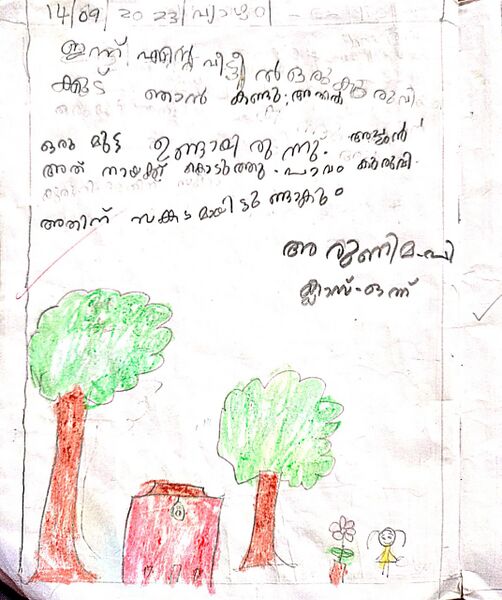 14/09/2023/വ്യാഴം
ഇന്ന് എന്റെ വീട്ടിൽ ഒരു കു
ക്കൂട് ഞാൻ കണ്ടു; അതിൽ രുവി
ഒരു മുട്ട ഉണ്ടായിരുന്നു.
അത് നായക്ക് കൊടുത്തു. പാവം കുരുവി.
അതിന് സങ്കടമായിട്ടുണ്ടാകും
അരുണിമ.പി
ക്ലാസ്-ഒന്ന്